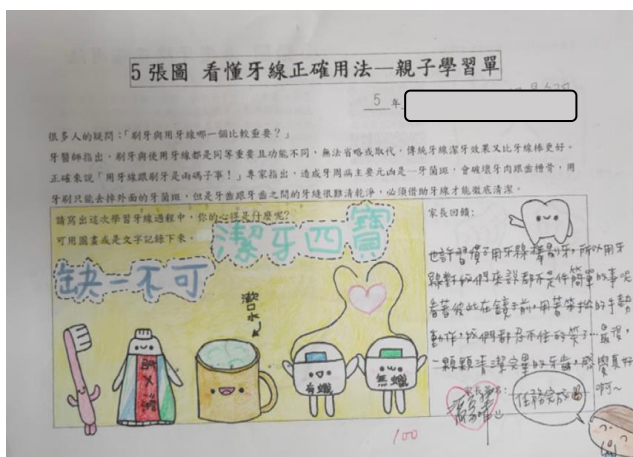 5張圖 看懂牙線正確用法—親子學習單
5 年
很多人的疑問:「刷牙與用牙線哪一個比較重要?」
牙醫師指出,刷牙與使用牙線都是同等重要且功能不同,無法省略或取代,傳統牙線潔牙效果又比牙線棒更好。
正確來說「用牙線跟刷牙是兩碼子事!」專家指出,造成牙周病主要元凶是—牙菌斑,會破壞牙肉跟齒槽骨,用
牙刷只能去掉外面的牙菌斑,但是牙齒跟牙齒之間的牙縫很難清乾淨,必須借助牙線才能徹底清潔。
請寫出這次學習牙線過程中,你的心得是什麼呢?
可用圖畫或是文字記錄下來。
潔牙四寶
缺一不可
漱口水
有蠟
無蠟
家長回饋:
也許習慣了用牙線棒剔牙,所以用牙
線對我們來說都不是件簡單的事呢
看著彼此在鏡前,用著笨拙的手勢
動作,我們都忍不住的笑了…最後,
一顆顆清潔完畢的牙齒,感覺真好
啊~
任務完成
100